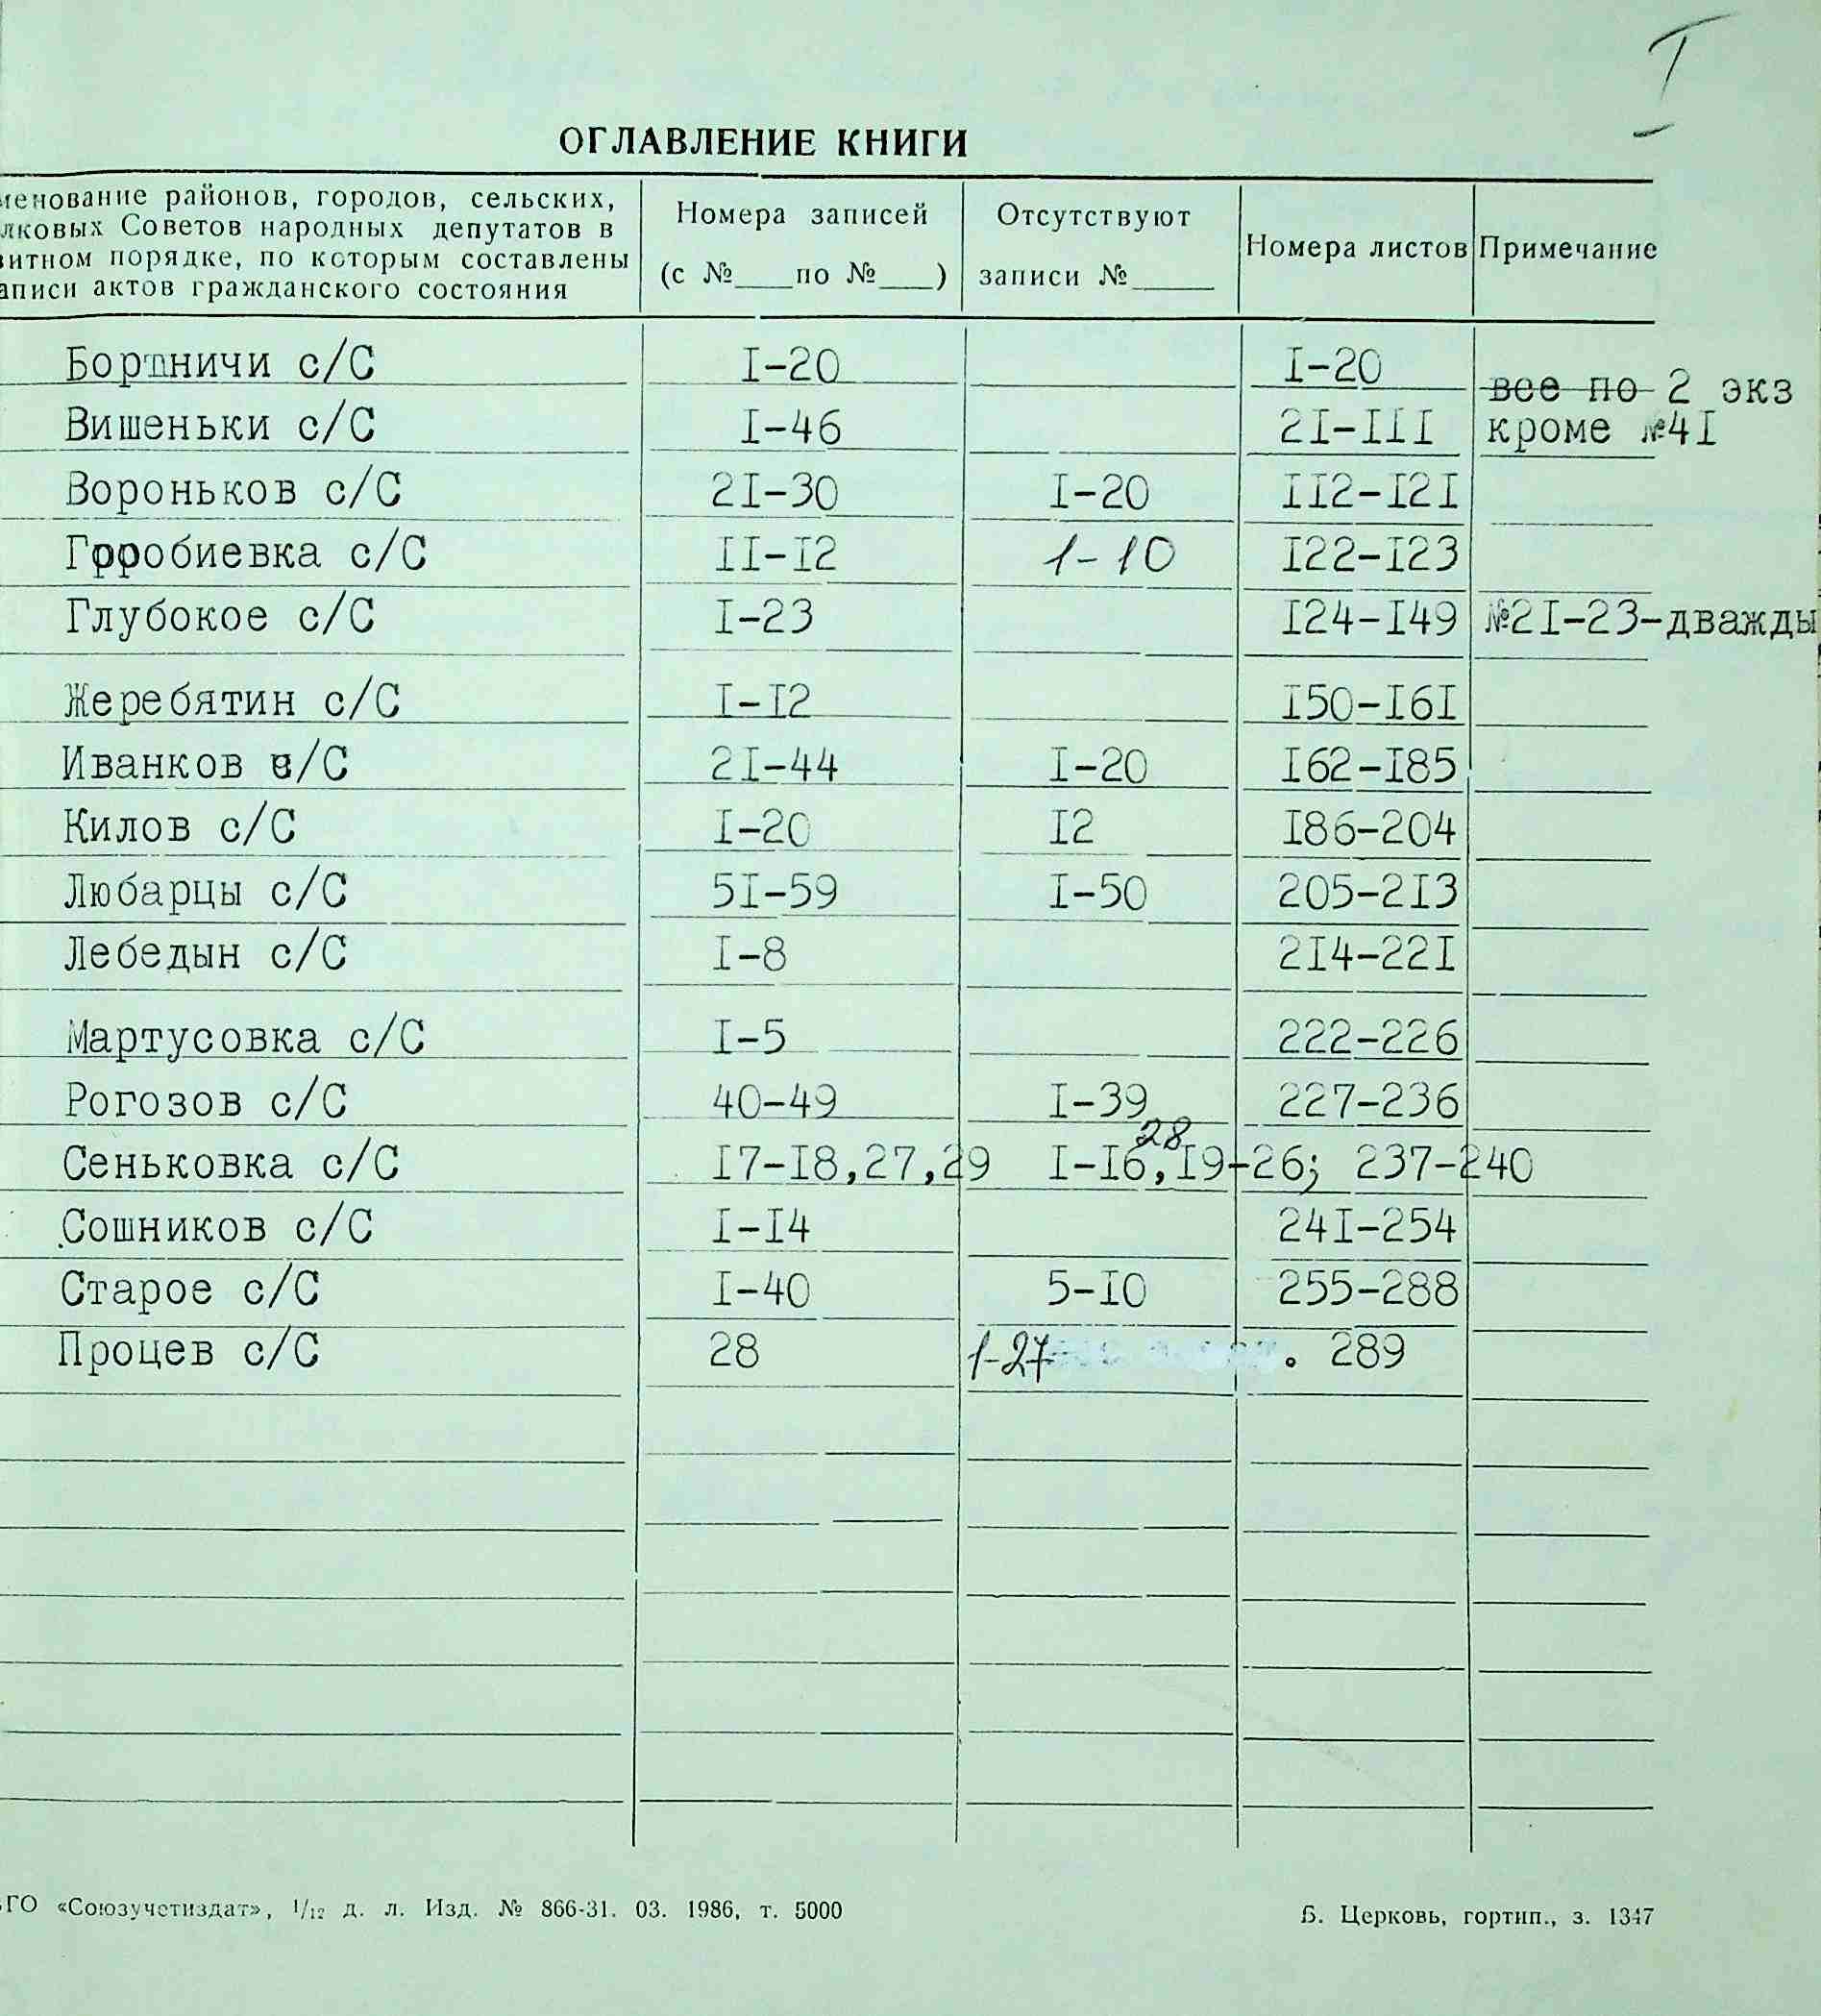 I
ОГЛАВЛЕНИЕ КНИГИ
менование районов, городов, сельских,
лковых Советов народных депутатов в
витном порядке, по которым составлены
аписи актов гражданского состояния
Номера записей
(с №____по №____)
Отсутствуют
записи №______
Номера листов
Примечание
Бортничи с/С I-20 I-20 все по 2 экз
Вишеньки с/С I-46 2I-III кроме №4I
Вороньков с/С 2I-30 I-20 II2-I2I
Грробиевка с/С II-I2 1-10 I22-I23
Глубокое с/С I-23 I24-I49 №2I-23-дважды
Жеребятин с/С I-I2 I50-I6I
Иванков с/С 2I-44 I-20 I62-I85
Килов с/С I-20 I2 I86-204
Любарцы с/С 5I-59 I-50 205-2I3
Лебедын с/С I-8 2I4-22I
Мартусовка с/С I-5 222-226
Рогозов с/С 40-49 I-39 227-236
28
Сеньковка с/С I7-I8,27,29 I-I6,I9-26; 237-240
Сошников с/С I-I4 24I-254
Старое с/С I-40 5-I0 255-288
Процев с/С 28 1-27 . 289
ГО «Союзучетиздат», 1/12 д. л. Изд. № 866-31. 03. 1986, т. 5000
Б. Церковь, гортип., з. 1347